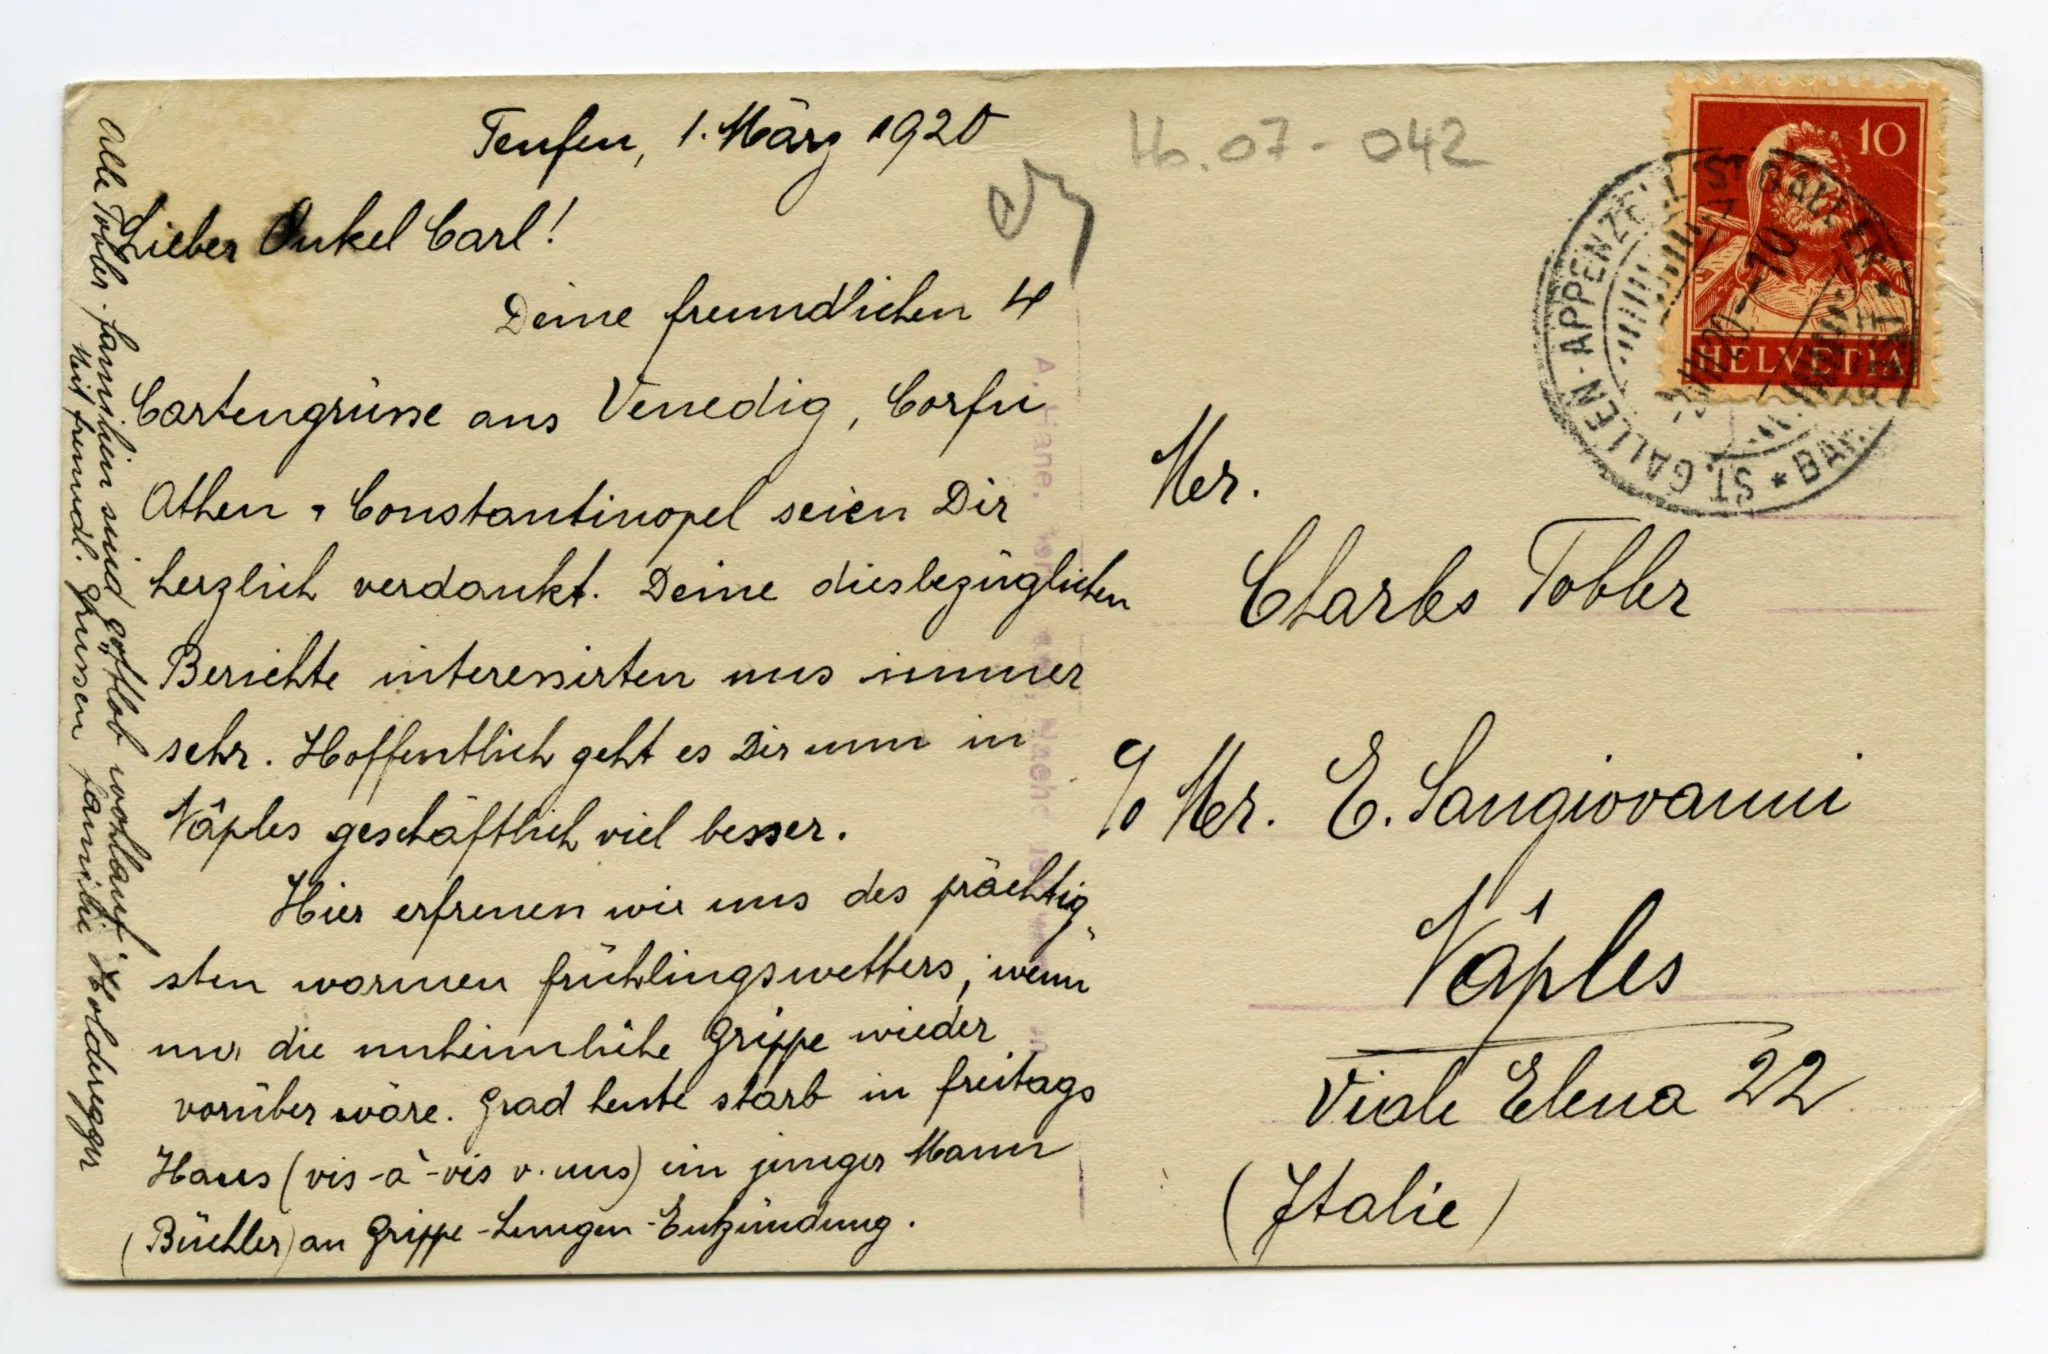 Teufen, 1. März 1920
Lieber Onkel Carl!
Deine freundlichen 4
Cartengrüsse aus Venedig, Corfu
Athen, Constantinopel seien Dir
herzlich verdankt. Deine diesbezüglichen
Berichte interessirten uns immer
sehr. Hoffentlich geht es Dir nun in
Nâples geschäftlich viel besser.
Hier erfreuen wir uns des prächtig
sten warmen frühlingswetters, wenn
nur die unheimliche Grippe wieder
vorüber wäre. Grad heute starb in freitags
Haus (vis-à-vis v. uns) ein junger Mann
(Büchler) an Grippe-Lungen-Entzündung.
Alle Tobler-familien sind gottlob wohlauf.
Mit freundl. Grüssen familie Holderegger
Hb.07-042
10
HELVETIA
ST. GALLEN-APPENZELL-ST. GALLEN
Mr.
Charles Tobler
c/o Mr. E. Sangiovanni
Nâples
Viale Elena 22
(Italie)